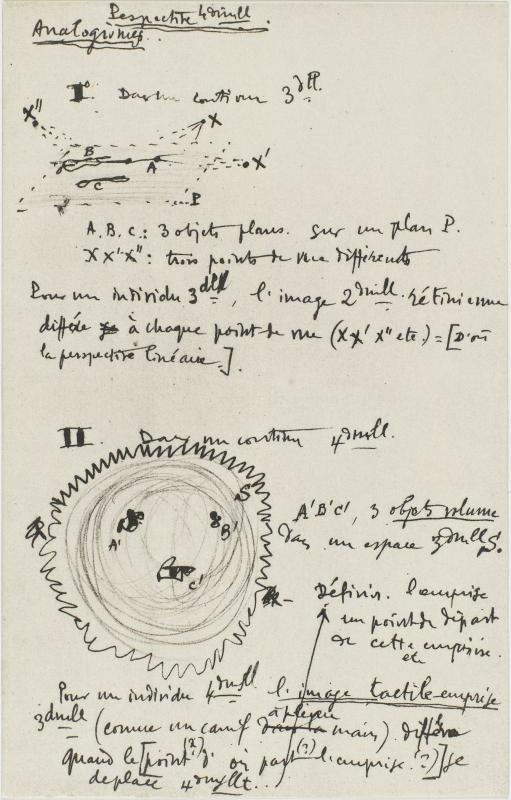 Perspective 4dimll
Analogismes.
I° Dans un continu 3dll.
X" X
B A X'
C
P
A.B.C.: 3 objets plans. sur un plan P.
X X' X": trois points de vue différents
Pour un individu 3dll, l'image 2dimll. rétinienne
diffère à chaque point de vue (X X' X" etc.) = [D'où
la perspective linéaire.]
II. Dans un continu 4dimll.
S
A' B'
C'
A'B'C', 3 objets volume
dans un espace 3dimll S.
Définir. l'emprise
un point de départ
de cette emprise.
etc
Pour un individu 4dimll l'image tactile-emprise
3dimll (comme un canif à pleine main) diffère
quand le [point (?) d' où part (?) l'emprise (?)] se
déplace 4dimllt.